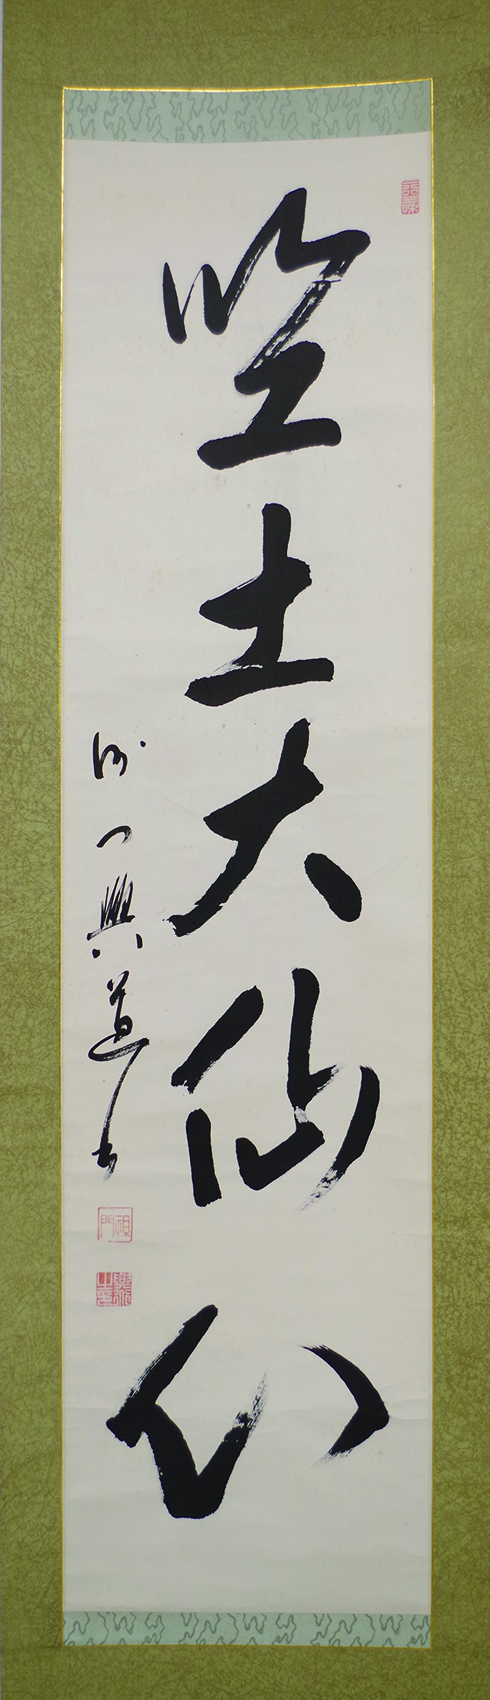 竺土大仙心
興道書
祖門